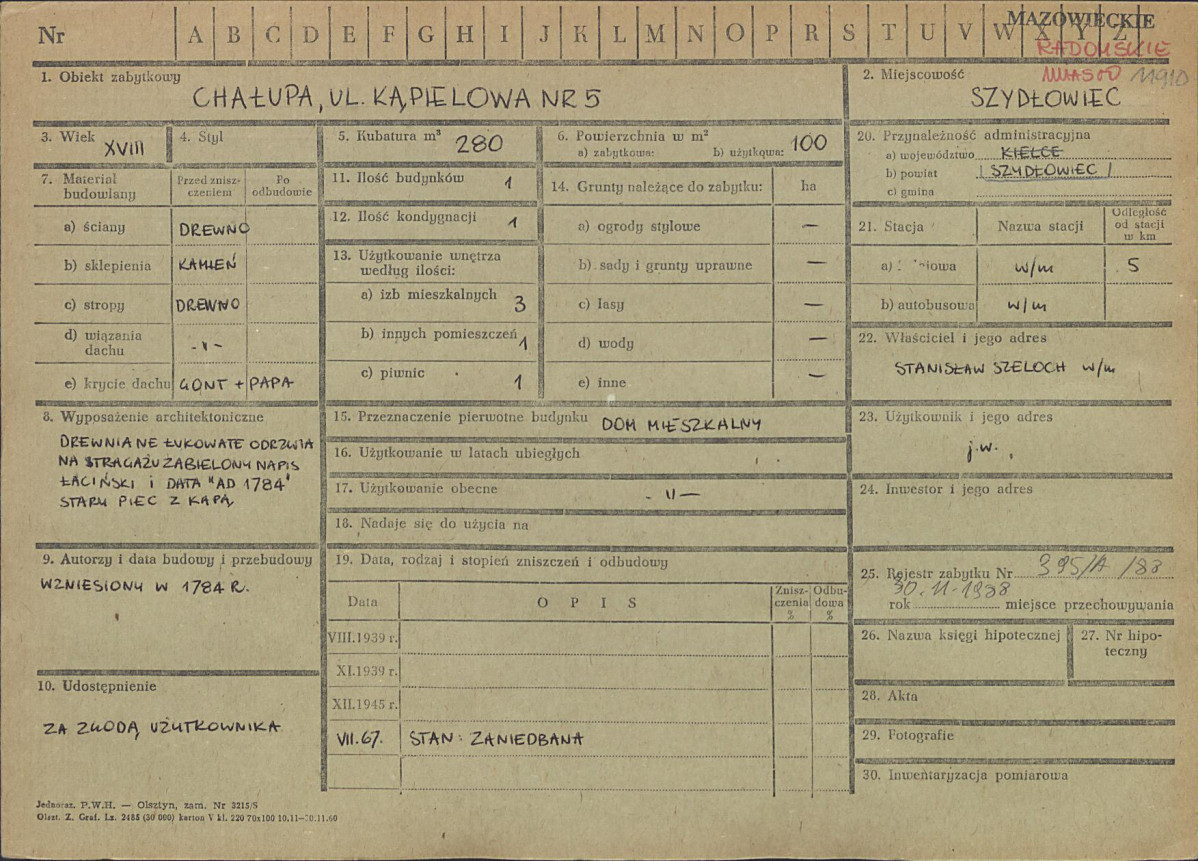 Nr A B C D E F G H I J K L M N O P R S T U V W X Y Z
MAZOWIECKIE
RADOMSKIE
11910
1. Obiekt zabytkowy
CHAŁUPA, UL. KĄPIELOWA NR 5
2. Miejscowość
SZYDŁOWIEC
3. Wiek XVIII
4. Styl
5. Kubatura m³ 280
6. Powierzchnia w m²
a) zabytkowa: b) użytkowa: 100
7. Materiał budowlany
Przed zniszczeniem
Po odbudowie
a) ściany DREWNO
b) sklepienia KAMIEŃ
c) stropy DREWNO
d) wiązania dachu -〃-
e) krycie dachu GONT + PAPA
8. Wyposażenie architektoniczne
DREWNIANE ŁUKOWATE ODRZWIA
NA STRAGAŻU ZABIELONY NAPIS
ŁACIŃSKI i DATA "AD 1784"
STARY PIEC Z KAPĄ
9. Autorzy i data budowy i przebudowy
WZNIESIONY W 1784 R.
10. Udostępnienie
ZA ZGODĄ UŻYTKOWNIKA
11. Ilość budynków 1
12. Ilość kondygnacji 1
13. Użytkowanie wnętrza
według ilości:
a) izb mieszkalnych 3
b) innych pomieszczeń 1
c) piwnic 1
14. Grunty należące do zabytku: ha
a) ogrody stylowe —
b) sady i grunty uprawne —
c) lasy —
d) wody —
e) inne —
15. Przeznaczenie pierwotne budynku DOM MIESZKALNY
16. Użytkowanie w latach ubiegłych
17. Użytkowanie obecne - 〃 -
18. Nadaje się do użycia na
19. Data, rodzaj i stopień zniszczeń i odbudowy
Data OPIS Zniszczenia % Odbudowa %
VIII.1939 r.
XI.1939 r.
XII.1945 r.
VII.67. STAN: ZANIEDBANA
20. Przynależność administracyjna
a) województwo KIELCE
b) powiat SZYDŁOWIEC
c) gmina
21. Stacja Nazwa stacji Odległość od stacji w km
a) w/m 5
b) autobusowa w/m
22. Właściciel i jego adres
STANISŁAW SZELOCH w/m
23. Użytkownik i jego adres
j.w.
24. Inwestor i jego adres
25. Rejestr zabytku Nr 395/A/88
30.11.1988
rok miejsce przechowywania
26. Nazwa księgi hipotecznej
27. Nr hipoteczny
28. Akta
29. Fotografie
30. Inwentaryzacja pomiarowa
Jednoraz. P.W.H. — Olsztyn, zam. Nr 3215/S
Olszt. Z. Graf. Lz. 2488 (30 000) karton V kl. 220 70x100 10.11—10.11.60